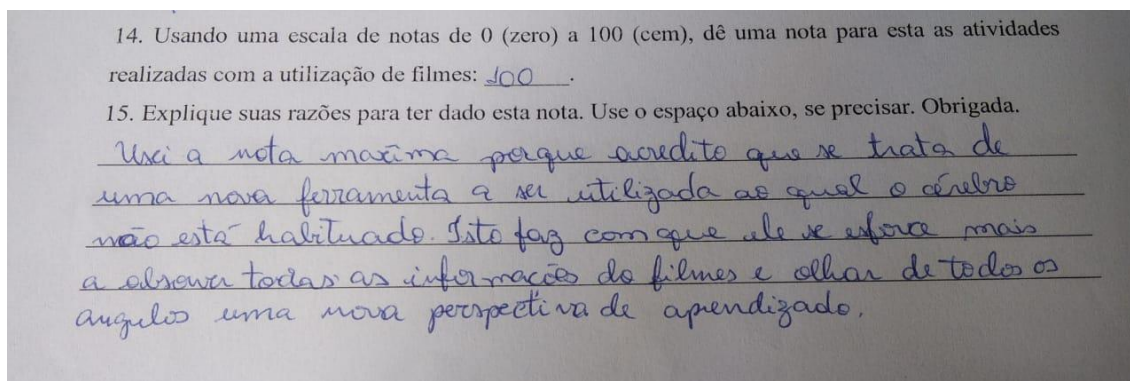 14. Usando uma escala de notas de 0 (zero) a 100 (cem), dê uma nota para esta as atividades
realizadas com a utilização de filmes: 100.
15. Explique suas razões para ter dado esta nota. Use o espaço abaixo, se precisar. Obrigada.
Usei a nota maxima porque acredito que se trata de
uma nova ferramenta a ser utilizada ao qual o cérebro
não está habituado. Isto faz com que ele se esforce mais
a absover todas as informações do filmes e olhar de todos os
angulos uma nova perspectiva de aprendizado.